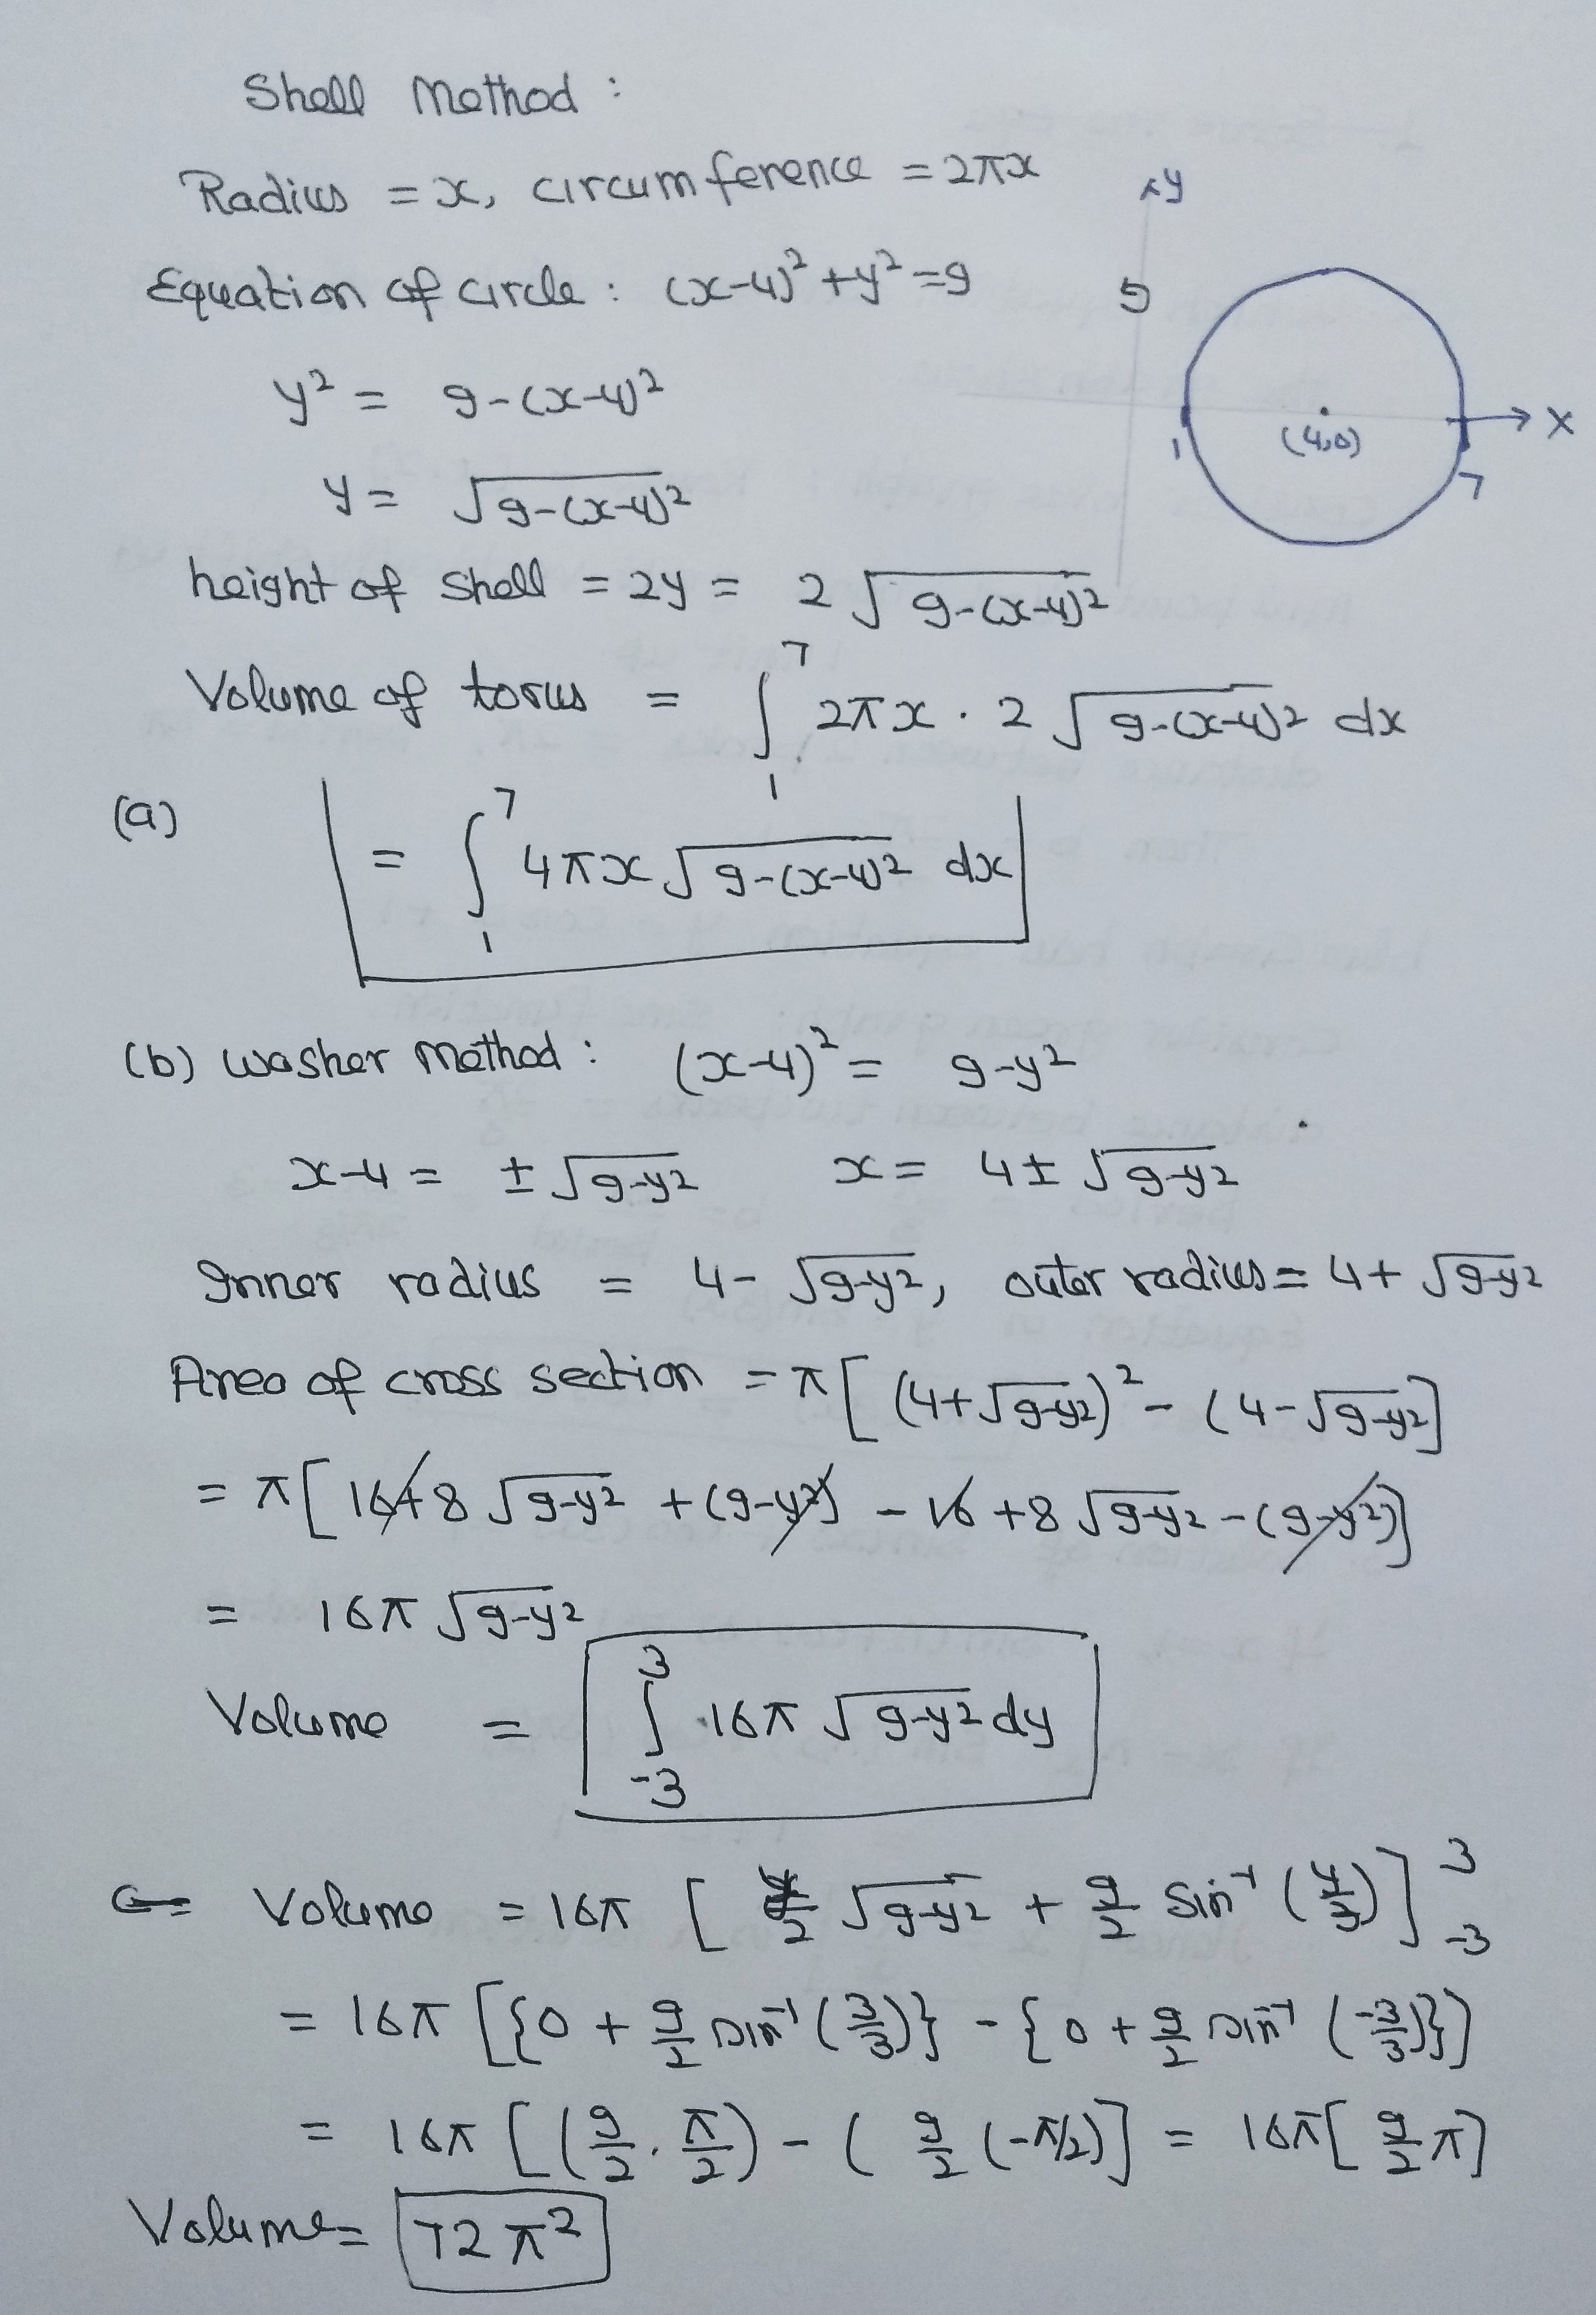 Shell Method :
Radius = x, circumference = 2πx
Equation of circle : (x-4)² + y² = 9
y² = 9-(x-4)²
y = √9-(x-4)²
height of shell = 2y = 2 √9-(x-4)²
Volume of torus = ∫₁⁷ 2πx · 2 √9-(x-4)² dx
y
5
(4,0)
1
7
X
(a) = ∫₁⁷ 4πx √9-(x-4)² dx
(b) Washer Method : (x-4)² = 9-y²
x-4 = ± √9-y² x = 4 ± √9-y²
Inner radius = 4 - √9-y², outer radius = 4 + √9-y²
Area of cross section = π[ (4+√9-y²)² - (4-√9-y²]
= π[ 16+8 √9-y² + (9-y²) - 16 + 8 √9-y² - (9-y²)]
= 16π √9-y²
Volume = ∫₋₃³ 16π √9-y² dy
Volume = 16π [ y/2 √9-y² + 9/2 Sin⁻¹ (y/3) ]₋₃³
= 16π [{0 + 9/2 sin⁻¹ (3/3)} - {0 + 9/2 sin⁻¹ (-3/3)}]
= 16π [(9/2 · π/2) - ( 9/2 (-π/2)] = 16π[ 9/2 π]
Volume = 72 π²